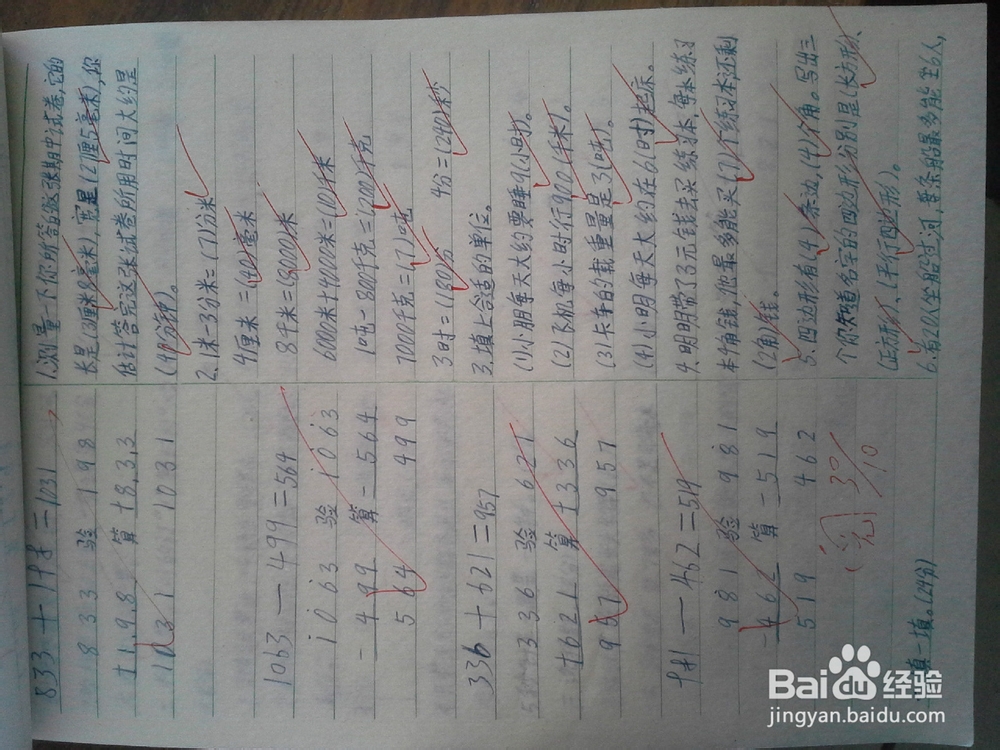 833+198=1031
833 验 198
+1.9.8 算 +8.3.3
1031 1031
1063-499=564
1063 验 1063
-499 算 -564
564 499
336+621=957
336 验 621
+621 算 +336
957 957
981-462=519
981 验 981
-462 算 -519
519 462
阅 30/10
填一填。(24分)
1.测量一下你所答的这张期中试卷,它的
长是(3厘米8毫米),宽是(27厘5毫米),你
估计答完这张试卷所用时间大约是
(40分钟)。
2.1米-3分米=(7)分米
4厘米=(40)毫米
8千米=(8000)米
6000米+4000米=(10)千米
1吨-800千克=(200)千克
7000千克=(7)吨
3时=(180)分 4分=(240)秒
3.填上合适的单位。
(1)小朋每天大约要睡9(小时)。
(2)飞机每小时行900(千米)。
(3)卡车的载重量是3(吨)。
(4)小明每天大约在6(时)起床。
4.明明带了3元钱去买练习本,每本练习
本4角钱,他最多能买(7)个练习本,还剩
(2角)钱。
5.四边形有(4)条边,(4)个角。写出三
个你知道名字的四边形分别是(长方形)、
(正方形)、(平行四边形)。
6.有20人坐船过河,每条船最多能坐6人,
Baidu经验
jingyan.baidu.com